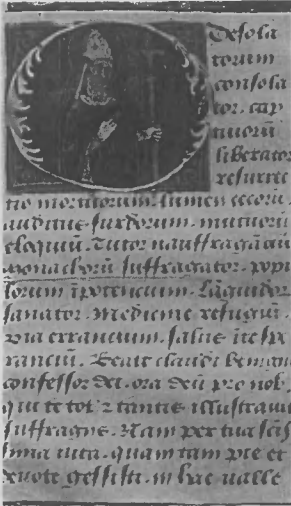 Desola
torum
consola
tor. cap
tiuorū
liberator
resurrec
tio mortuorum. lumen cecorū.
auditus surdorum. mutuorū
eloquiū. Tutor nauffragātiū
monachorū suffragator. popu
lorum īpotencium. Lāguidor
sanator. Medicine refugiū.
via errancium. salus ī te spe
ranciū. Beate claudi benigne
confessor dei. ora deū pro nob
qui te tot 2 tantis illustrauit
suffragiis. Nam per tua scīs
sima uita. quam tam pie et
deuote gessisti. in hac ualle